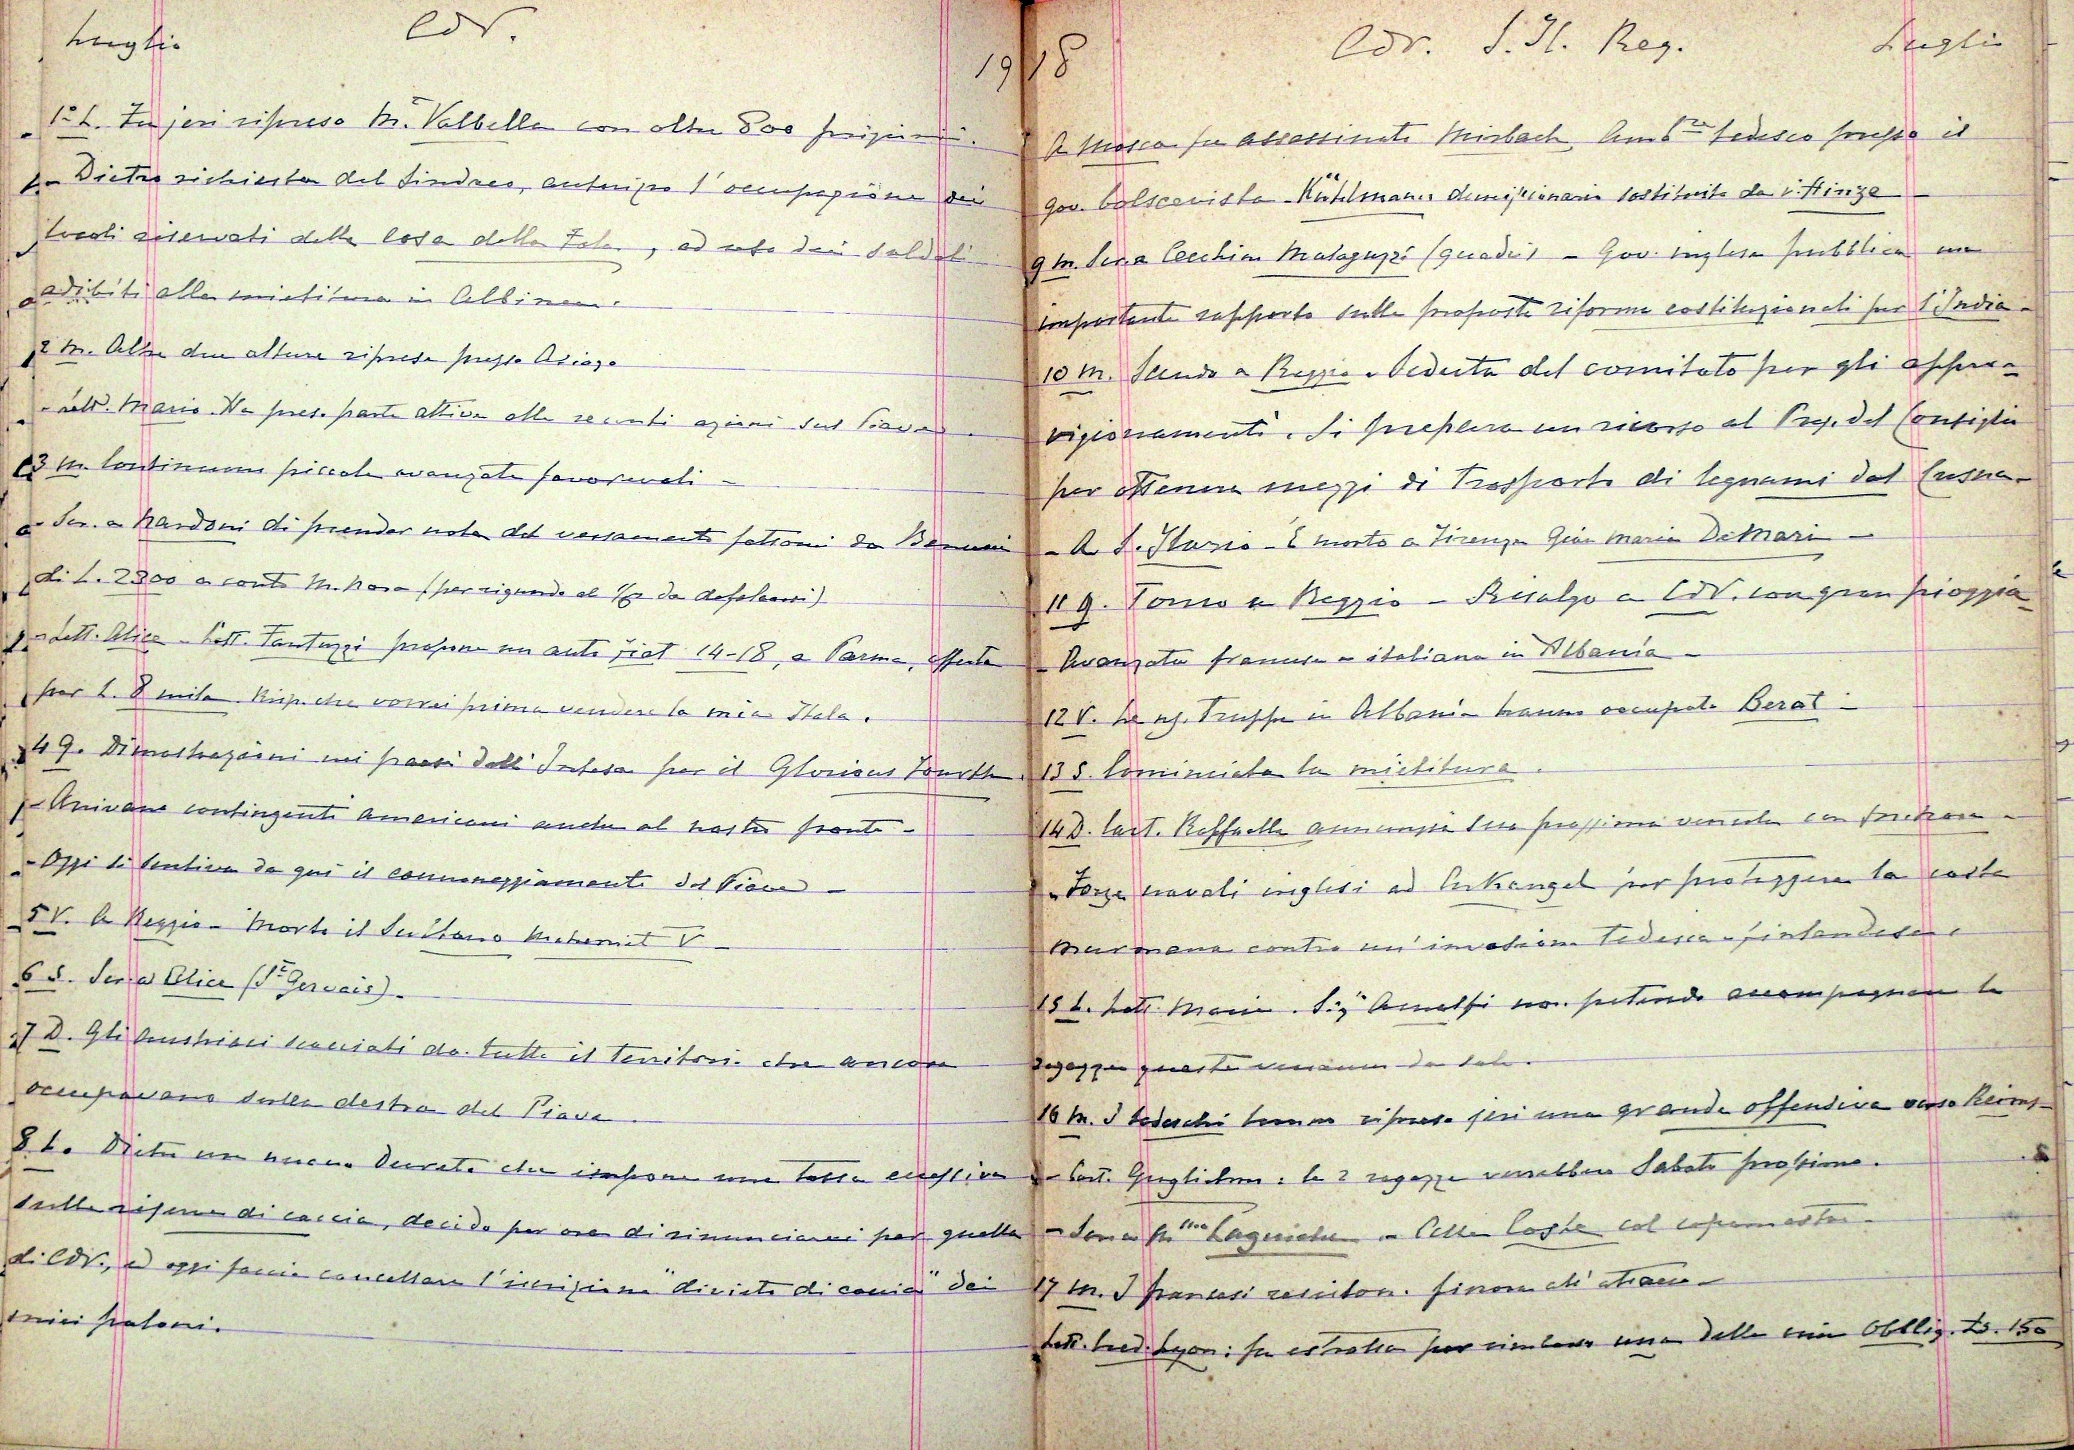 Luglio CdV. 19
1° L. Fu jeri ripreso M.te Valbella con oltre 800 prigionieri.
- Dietro richiesta del Sindaco, autorizzo l'occupazione dei
locali riservati della Casa della Fola, ad uso dei soldati
adibiti alla mietitura in Albinea.
2 M. Altre due alture riprese presso Asiago
- Lett. Mario. Ha preso parte attiva alle recenti azioni sul Piave.
3 M. Continuano piccole avanzate favorevoli -
- Scr. a Nardoni di prender nota del versamento fattomi da
di L. 2300 a conto M. Nora (per riguardo al da defalcarsi)
- Lett. Alice - Lett. Fantuzzi propone un auto Fiat 14-18, a Parma, offerta
per L. 8 mila. Risp. che vorrei prima vendere la mia Itala.
4 G. Dimostrazioni nei paesi dell'Intesa per il Glorious Fourth.
- Arrivano contingenti americani anche al nostro fronte -
- Oggi si sentiva da qui il cannoneggiamento del Piave -
5 V. A Reggio - Morto il Sultano Mehemet V -
6 S. Scr. a Alice (St Gervais).
7 D. Gli Austriaci scacciati da tutto il territorio che ancora
occupavano sulla destra del Piave.
8 L. Dietro un nuovo Decreto che impone una tassa eccessiva
sulle riserve di caccia, decido per ora di rinunciarvi per quella
di CdV., ed oggi faccio cancellare l'iscrizione "divieto di caccia" dai
miei paloni.
18 CdV. S. Il. Reg. Luglio
A Mosca fu assassinato Mirbach, Amb.re tedesco presso il
gov. bolscevista - Kühlmann dimissionario sostituito da v. Hinze -
9 M. Scr. a Cecchino Malaguzzi (quadri) - Gov. inglese pubblica un
importante rapporto sulle proposte riforme costituzionali per l'India -
10 M. Scendo a Reggio. Seduta del comitato per gli appro-
vigionamenti. Si prepara un ricorso al Pres. del Consiglio
per ottenere mezzi di trasporto di legnami dal Cusna -
- A S. Ilario - È morto a Firenze Gian Maria De Mari -
11 G. Torno a Reggio - Risalgo a CdV. con gran pioggia -
- Avanzata francese e italiana in Albania -
12 V. Le ns. truppe in Albania hanno occupato Berat -
13 S. Cominciata la mietitura.
14 D. Cart. Raffaella annunzia sua prossima venuta con
- Forze navali inglesi ad Arkangel per proteggere la costa
murmana contro un'invasione tedesca-finlandese.
15 L. Lett. Maria. Sig.na Amalfi non potendo accompagnare le
ragazze queste verranno da sole.
16 M. I tedeschi hanno ripreso jeri una grande offensiva verso Reims -
- Cart. Guglielmo: le 2 ragazze verrebbero Sabato prossimo.
- Scr. a M.me Laguiche - Alla Costa col capomastro -
17 M. I francesi resistono finora all'attacco -
Lett. Cred. Lyon: fu estratta per rimborso una delle mie Obblig. Ls. 150